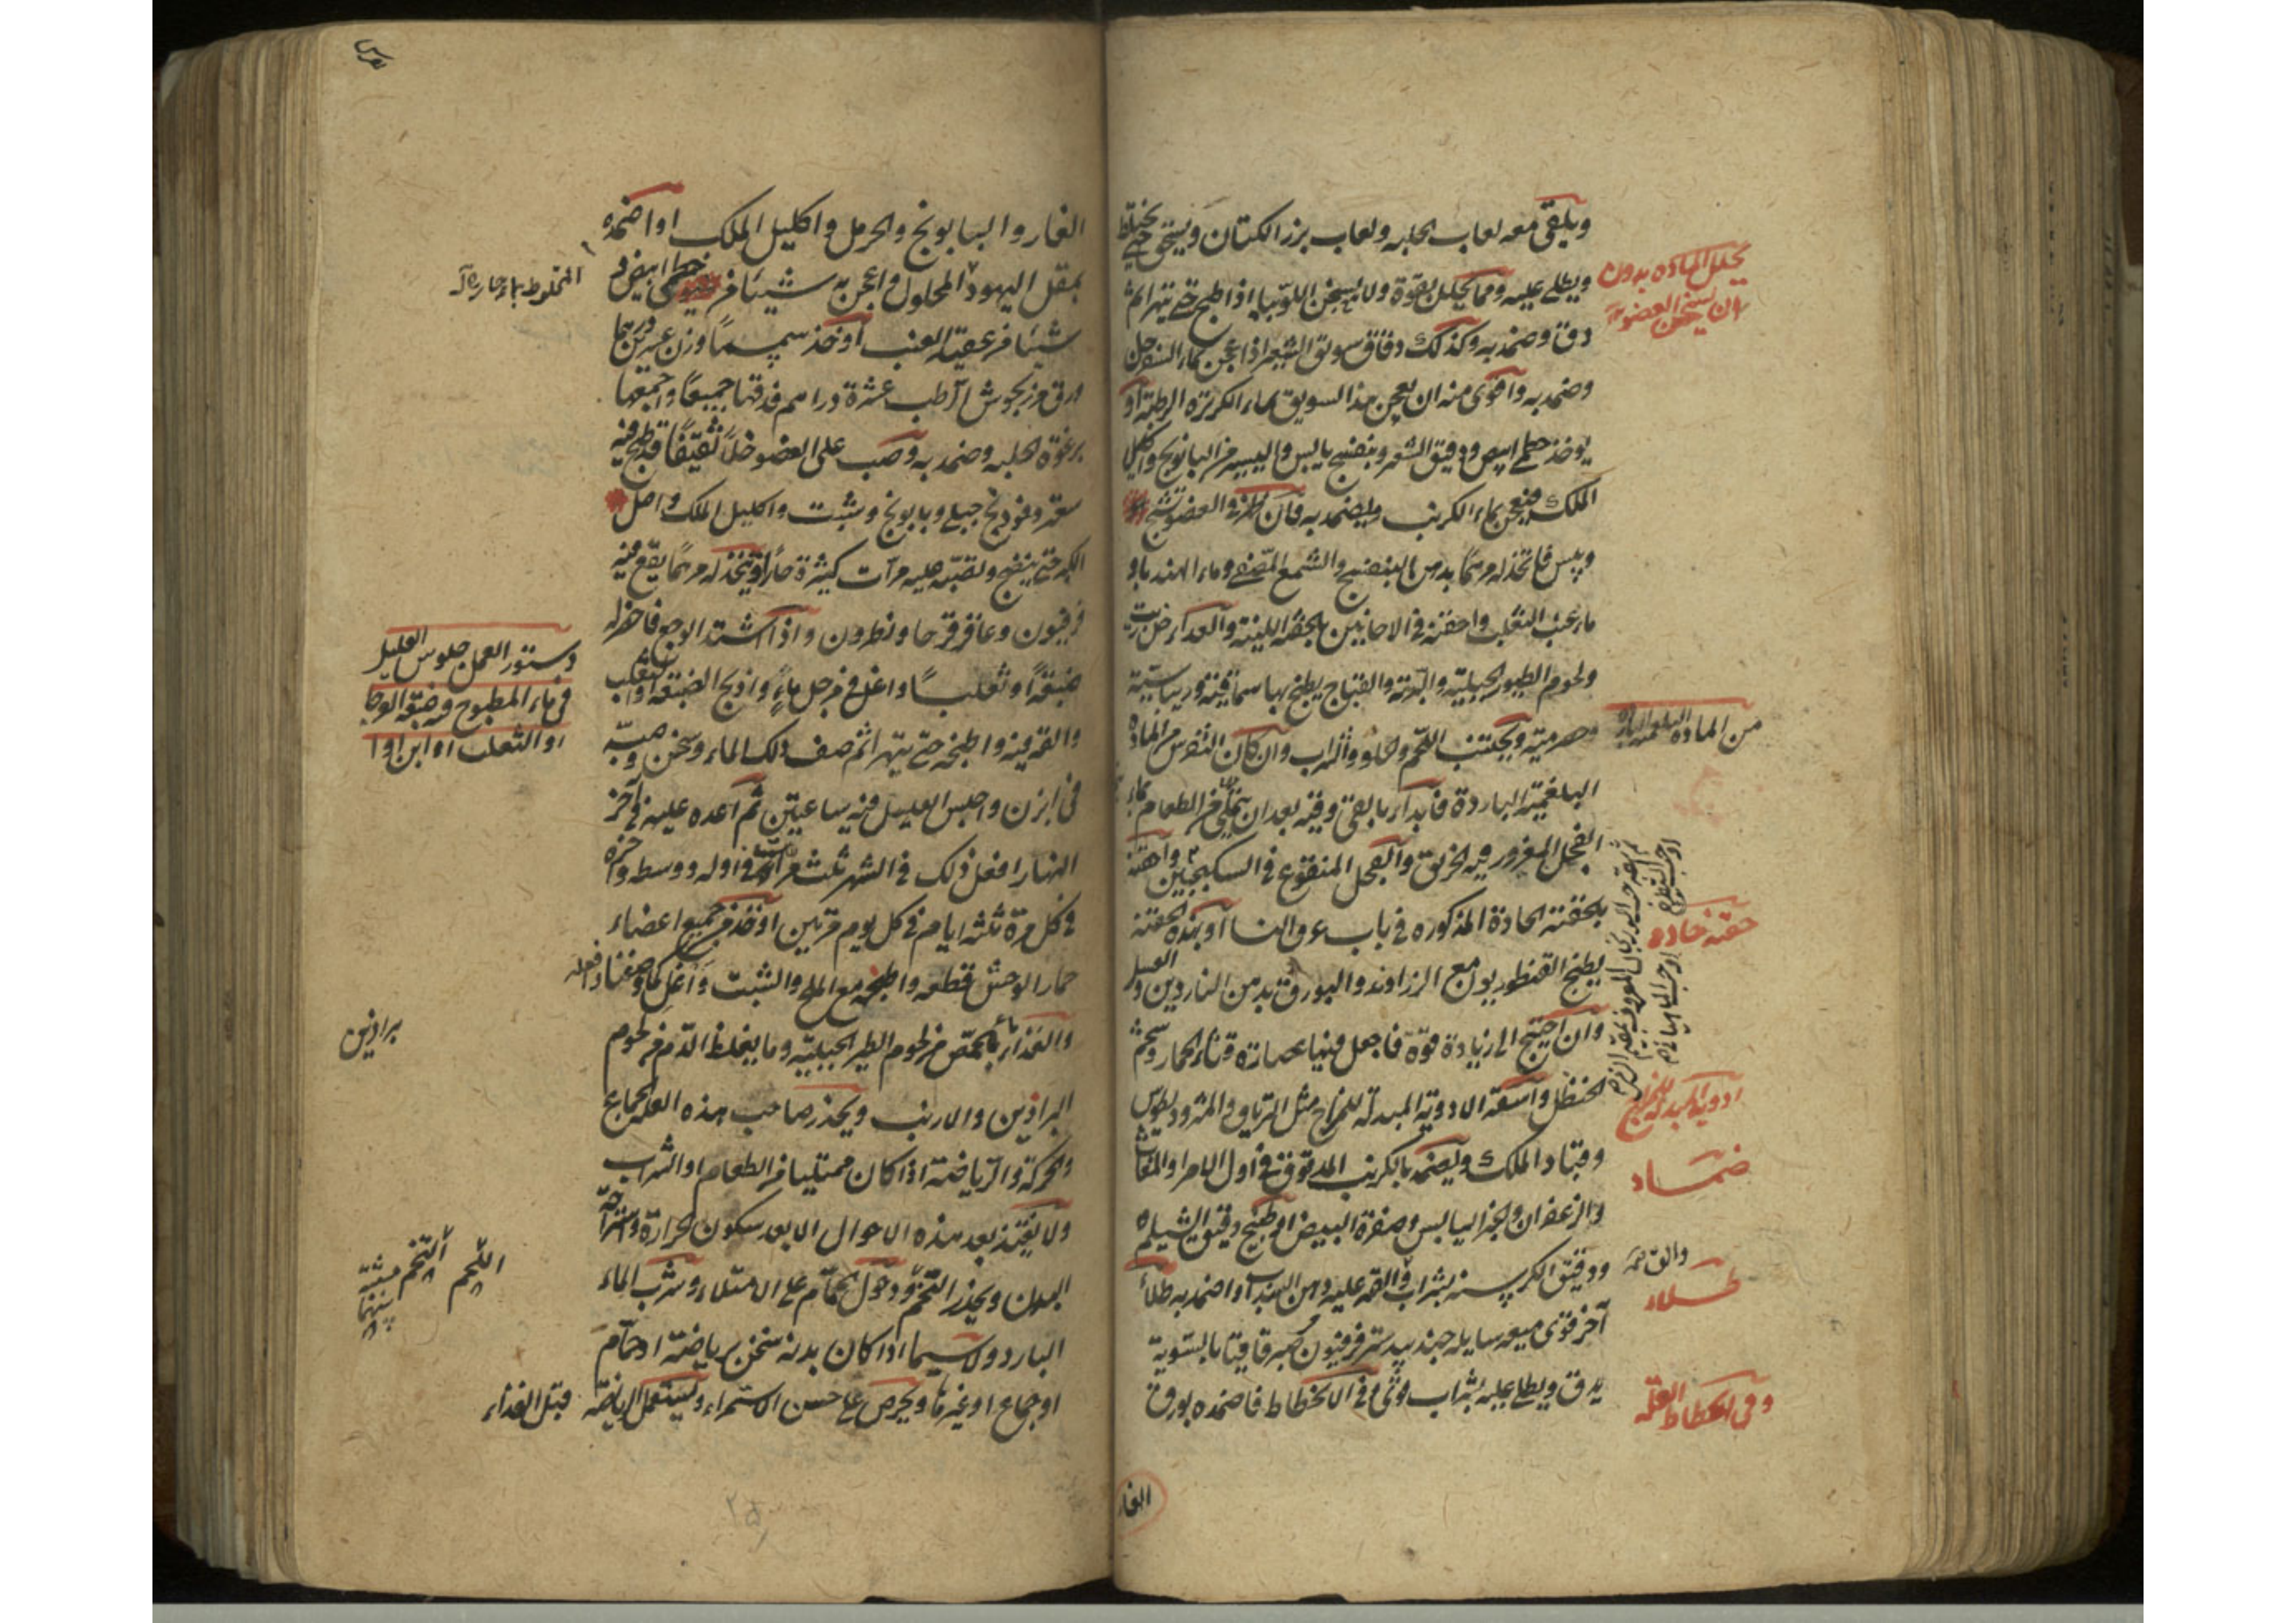 ويلقى معه لعاب الحلبه ولعاب بزر الكتان ويسخن حتى يختلط
ويطلى عليه ومما يحلل بقوة ولا يسخن اللوبيا اذا طبخ حتى يتهرا ثم
دق وضمد به وكذلك دقاق سويق الشعير اذا عجن بماء السفرجل
وضمد به واقوى منه ان يعجن هذا السويق بماء الكزبره الرطبة او
يوخذ خطمى ابيض ودقيق الشعير وبنفسج يابس واليسير من البابونج واكليل
الملك فيعجن بماء الكرنب وليضمد به فان العضو تشنج
ويبس فاتخذ له مرهما بدهن البنفسج والشمع المصفى وماء الهندبا و
ماء عنب الثعلب واحقنه فى الاحايين بالحقنة اللينة والغداء
ولحوم الطيور الجبلية والدراج يطبخ بها سماقية وريباسية
وحصرمية ويجتنب اللحم والحلو والشراب وان كان النقرس من المادة
البلغمية الباردة فابداء بالقئ وقيه بعد ان يتملى من الطعام بماء
الفجل المغرور فيه الخربق والفجل المنقوع فى السكنجبين واحقنه
بالحقنة الحادة المذكوره فى باب عرق النسا او بهذه الحقنه
يطبخ القنطوريون مع الزراوند والبورق بدهن الناردين والعسل
وان احتيج الى زيادة قوة فاجعل فيها عصارة قثاء الحمار وشحم
الحنظل واسقه الادوية المبدلة للمزاج مثل الترياق والمثروديطوس
وقباد الملك وليضمد بالكرنب المدقوق فى اول الامر او المغاث
والزعفران والخبز اليابس وصفرة البيض او طبيخ دقيق الشيلم
ودقيق الكرسنه بشراب والقه عليه دهن السذاب او اضمد به طلاء
آخر قوى ميعه سايله جندبيدستر فرفيون صبر قاقيا بالسوية
يدق ويطلى عليه بشراب وفى الانحطاط فاضمده بورق
الغار
يحلل الماده بدون
ان يسخن العضو
من الماده البلغمية الباردة
حقنه حاده
ادوية المبدلة للمزاج
ضماد
طلاء
وفى انحطاط العلة
الغار والبابونج والحرمل واكليل الملك او اضمده
بمقل اليهود المحلول واعجن به شيئا من خطمى ابيض و
شيئا من عقيد العنب او خذ سمسما وزن عشرين درهما
ورق مرزنجوش رطب عشرة دراهم فدقها جميعا واجمعها
برغوة الحلبه وضمد به وصب على العضو خلا ثقيفا قد طبخ فيه
سعتر وفوذنج جبلى وبابونج وشبت واكليل الملك واصل
الكبر حتى ينضج وتصبه عليه مرات كثيرة حارا او تتخذ له مرهما يقع فيه
فرفيون وعاقرقرحا ونطرون واذا اشتد الوجع فاحضر له
ضبعا او ثعلبا واغل فى مرجل ماء واذبح الضبعة او الثعلب
والقه فيه واطبخه حتى يتهرا ثم صف ذلك الماء وسخن وصبه
فى ابزن واجلس العليل فيه ساعتين ثم اعده عليه فى آخر
النهار افعل ذلك فى الشهر ثلث مرات فى اوله ووسطه وآخره
فى كل مرة ثلثه ايام فى كل يوم مرتين او خذ من جميع اعضاء
حمار الوحش قطعه واطبخه مع الملح والشبت واغل كما وصفنا وافعله
والغذاء بالحمص من لحوم الطير الجبلية وما يغلظ الدم من لحوم
البراذين والارنب ويحذر صاحب هذه العلة الجماع
والحركة والرياضة اذا كان ممتليا من الطعام او الشراب
ولا يغتذ بعد هذه الاحوال الا بعد سكون الحرارة واستراحة
البدن ويحذر التخم ودخول الحمام على الامتلاء وشرب الماء
البارد ولا سيما اذا كان بدنه سخن برياضة او حمام
او جماع او غيرها ويحرص على حسن الاستمراء ويستعمل الرياضة قبل الغذاء
المخلوط بماء حار
دستور العمل جلوس العليل
فى ماء المطبوخ فيه ضبعة العرجا
او الثعلب او ابن اوا
براذين
اللحم
التخم
٢٥